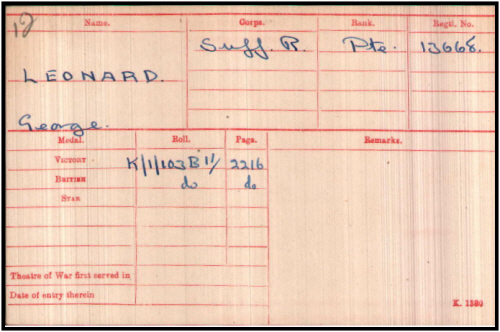 Name. Corps. Rank. Regtl. No.
Suff. R. Pte. 13668.
LEONARD.
George.
Medal. Roll. Page. Remarks.
Victory K/1/103 B 11/ 2216
British do do
Star
Theatre of War first served in
Date of entry therein
K. 1380